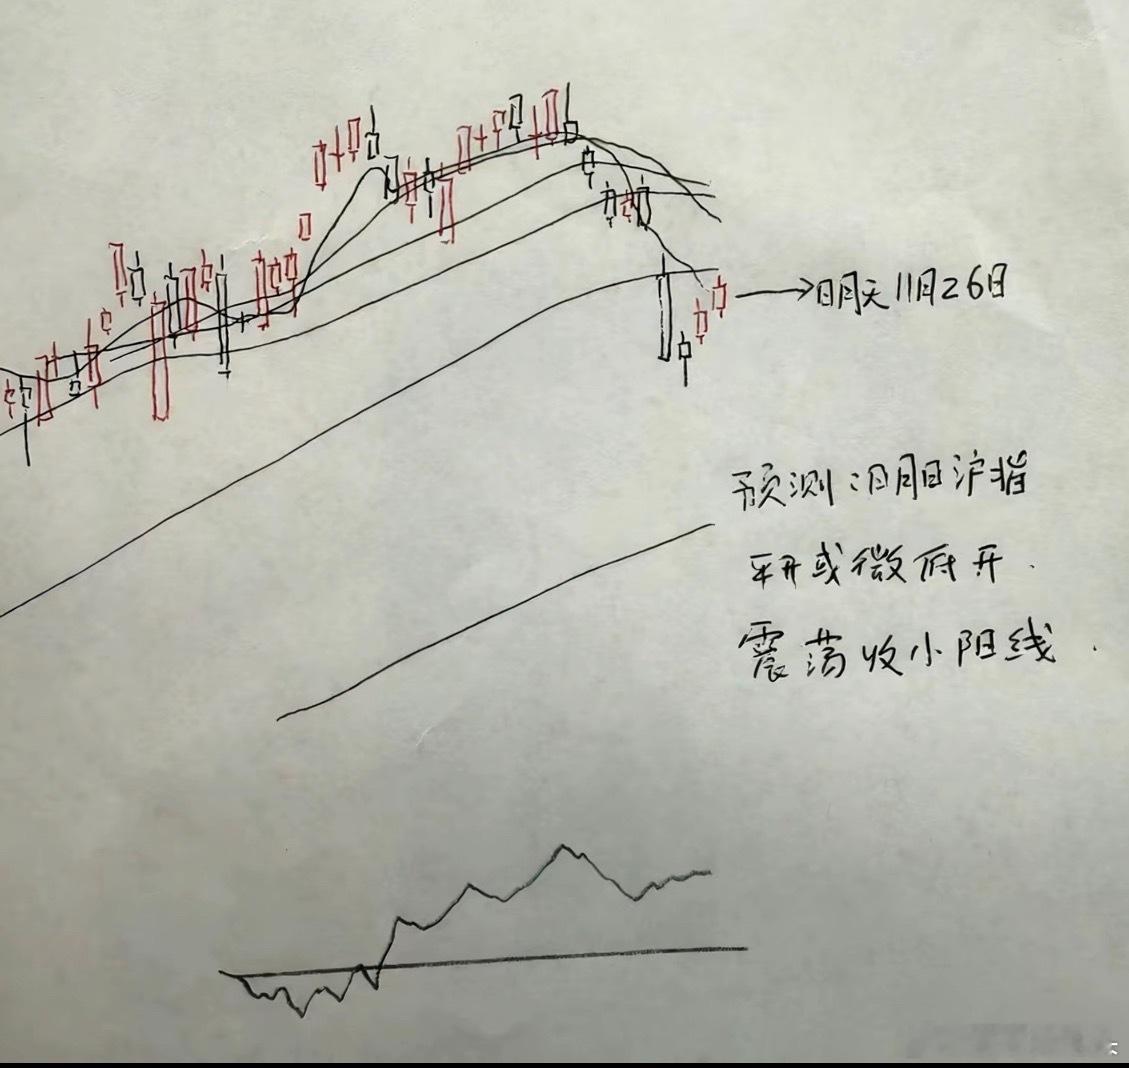 明天11月26日
预测:明日沪指
平开或微低开.
震荡收小阳线.